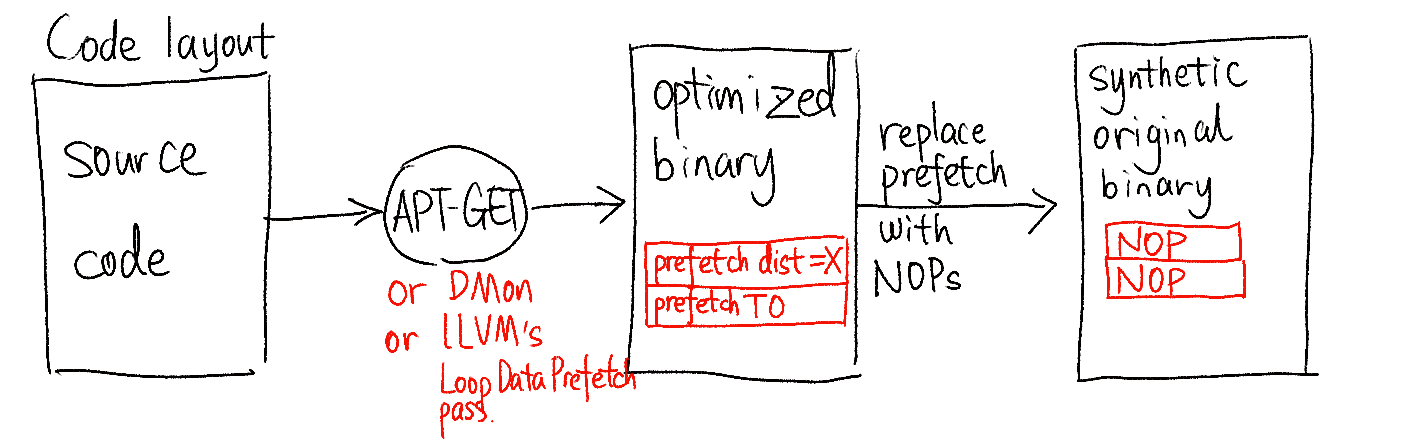 Code layout
source
code
APT-GET
or DMon
or LLVM's
Loop Data Prefetch
pass.
optimized
binary
prefetch dist=X
prefetch TO
replace
prefetch
with
NOPs
synthetic
original
binary
NOP
NOP